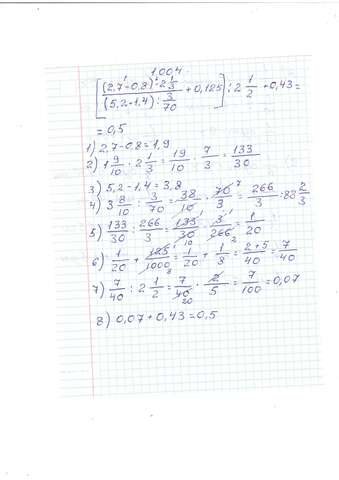 1.004
[((2,7-0,8)·2 1/3)/((5,2-1,4):3/70) + 0,125] : 2 1/2 + 0,43 =
= 0,5
1) 2,7-0,8=1,9
2) 1 9/10 · 2 1/3 = 19/10 · 7/3 = 133/30
3) 5,2-1,4=3,8
4) 3 8/10 : 3/70 = 38/10 · 70/3 = 266/3 = 88 2/3
5) 133/30 : 266/3 = 133/30 · 3/266 = 1/20
6) 1/20 + 125/1000 = 1/20 + 1/8 = 2+5/40 = 7/40
7) 7/40 : 2 1/2 = 7/40 · 2/5 = 7/100 = 0,07
8) 0,07+0,43=0,5